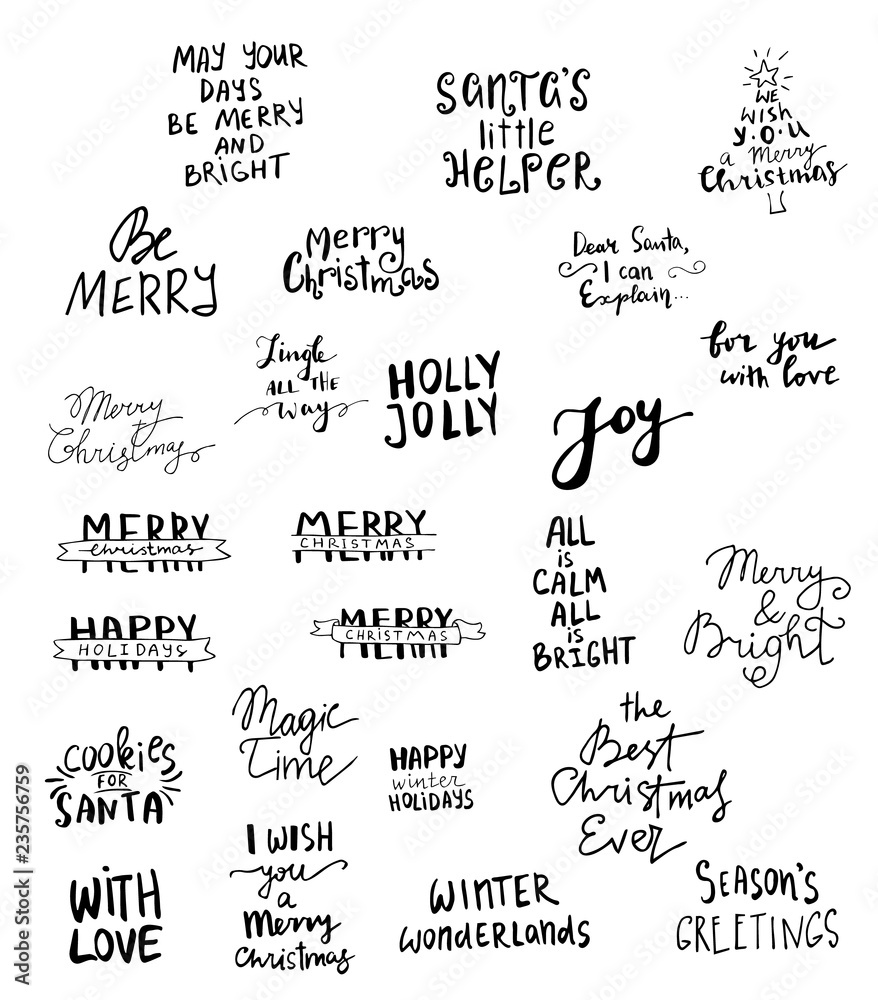 MAY YOUR
DAYS
BE MERRY
AND
BRIGHT
SANTA'S
little
HELPER
WE
wish
y.o.u
a Merry
Christmas
Be
MERRY
Merry
Christmas
Dear Santa,
I can
Explain...
for you
with love
Jingle
ALL THE
way
HOLLY
JOLLY
Joy
Merry
Christmas
MERRY
christmas
MERRY
CHRISTMAS
ALL
is
CALM
ALL
is
BRIGHT
Merry
&
Bright
HAPPY
HOLIDAYS
MERRY
CHRISTMAS
Magic
Time
the
Best
Christmas
Ever
Cookies
FOR
SANTA
HAPPY
winter
HOLIDAYS
I WISH
you
a
Merry
Christmas
WITH
LOVE
WINTER
wonderlands
SEASON'S
GREETINGS
Adobe Stock | #235756759